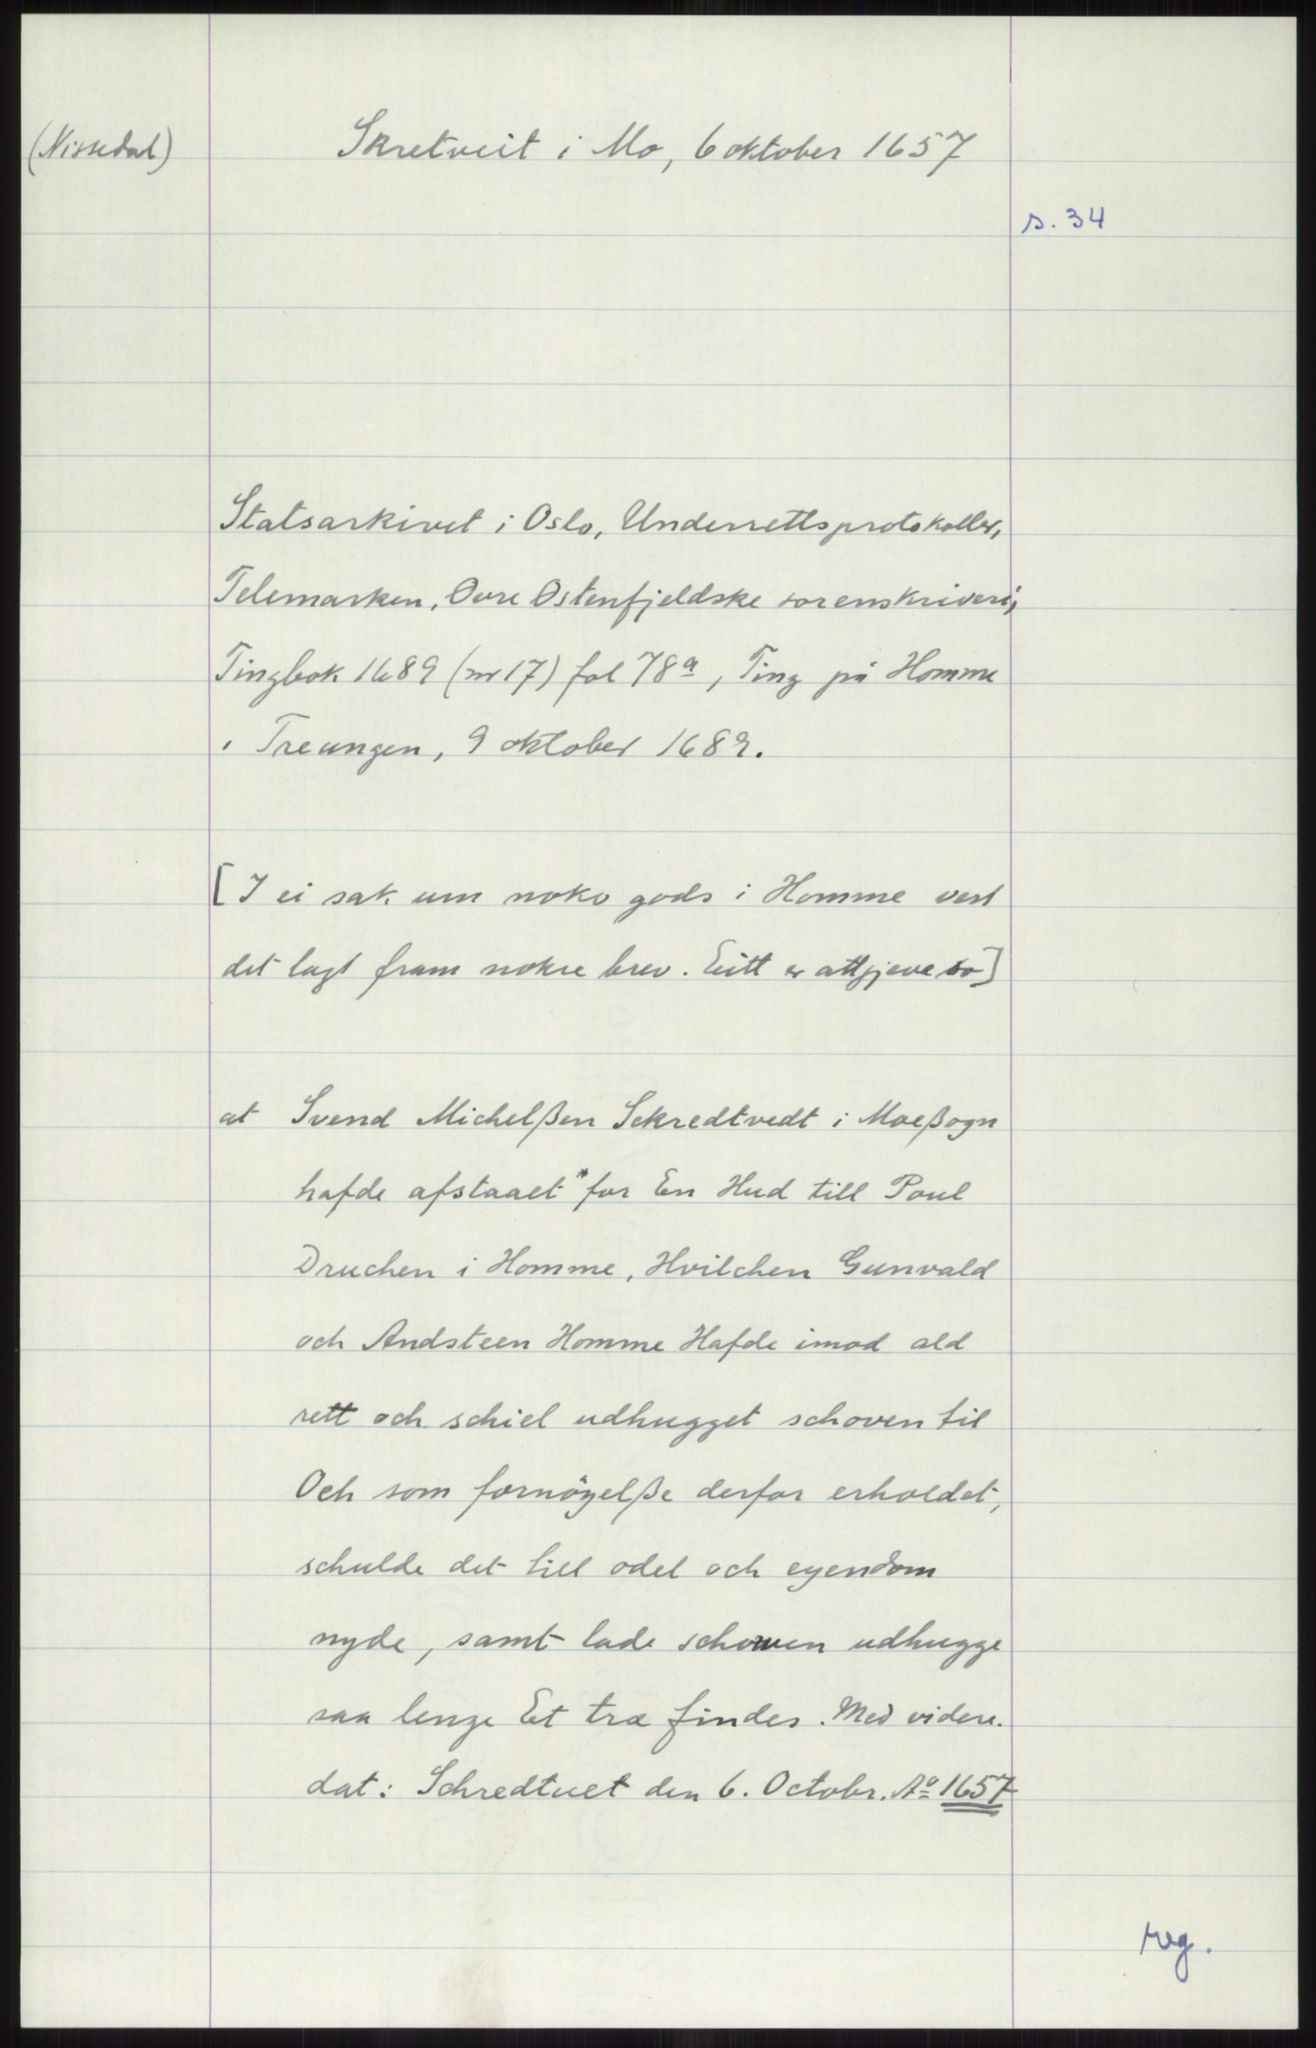 (Nissedal)
Skretveit i Mo, 6 oktober 1657
s. 34
Statsarkivet i Oslo, Underrettsprotokoller,
Telemarken, Øvre Østenfjeldske sorenskriveri,
Tingbok 1689 (nr 17) fol 78a, Ting på Homme
i Treungen, 9 oktober 1689.
[I ei sak um noko gods i Homme vert
det lagt fram nokre brev. Eitt er attgjeve so]
at Svend Michelßen Sckredtvedt i Moeßogn
hafde afstaaet* for En Hud till Poul
Druchen i Homme, Hvilchen Gunvald
och Andsteen Homme Hafde imod ald
rett och schiel udhugget schoven til
Och som fornöyelße derfor erholdet,
schulde det till odel och eyendom
nyde, samt lade schowen udhugge
saa lenge Et træ findes. Med videre.
dat: Schredtuet den 6. Octobr. Ao 1657
reg.